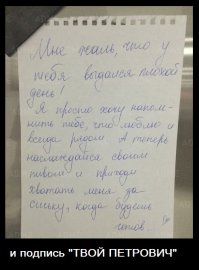 Мне жаль, что у
тебя выдался плохой
день!
Я просто хочу напом-
нить тебе, что люблю и
всегда рядом. А теперь
наслаждайся своим
пивом и приходи
хватать меня за
сиську, когда будешь
готов...
и подпись "ТВОЙ ПЕТРОВИЧ"